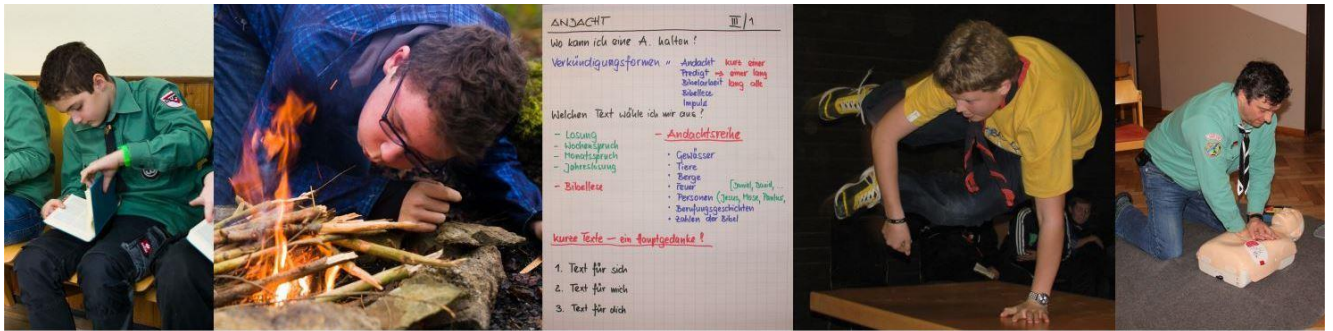 ANDACHT III/1
Wo kann ich eine A. halten?
Verkündigungsformen " Andacht kurz einer
Predigt => einer lang
Bibelarbeit lang alle
Bibellese
Impuls
Welchen Text wähle ich mir aus?
- Losung
- Wochenspruch
- Monatsspruch
- Jahreslosung
- Bibellese
- Andachtsreihe
• Gewässer
• Tiere
• Berge
• Feuer
• Personen (Jesus, Mose, Paulus,
[Daniel, David, ...
• Berufungsgeschichten
• Zahlen der Bibel
kurze Texte – ein Hauptgedanke!
1. Text für sich
2. Text für mich
3. Text für dich